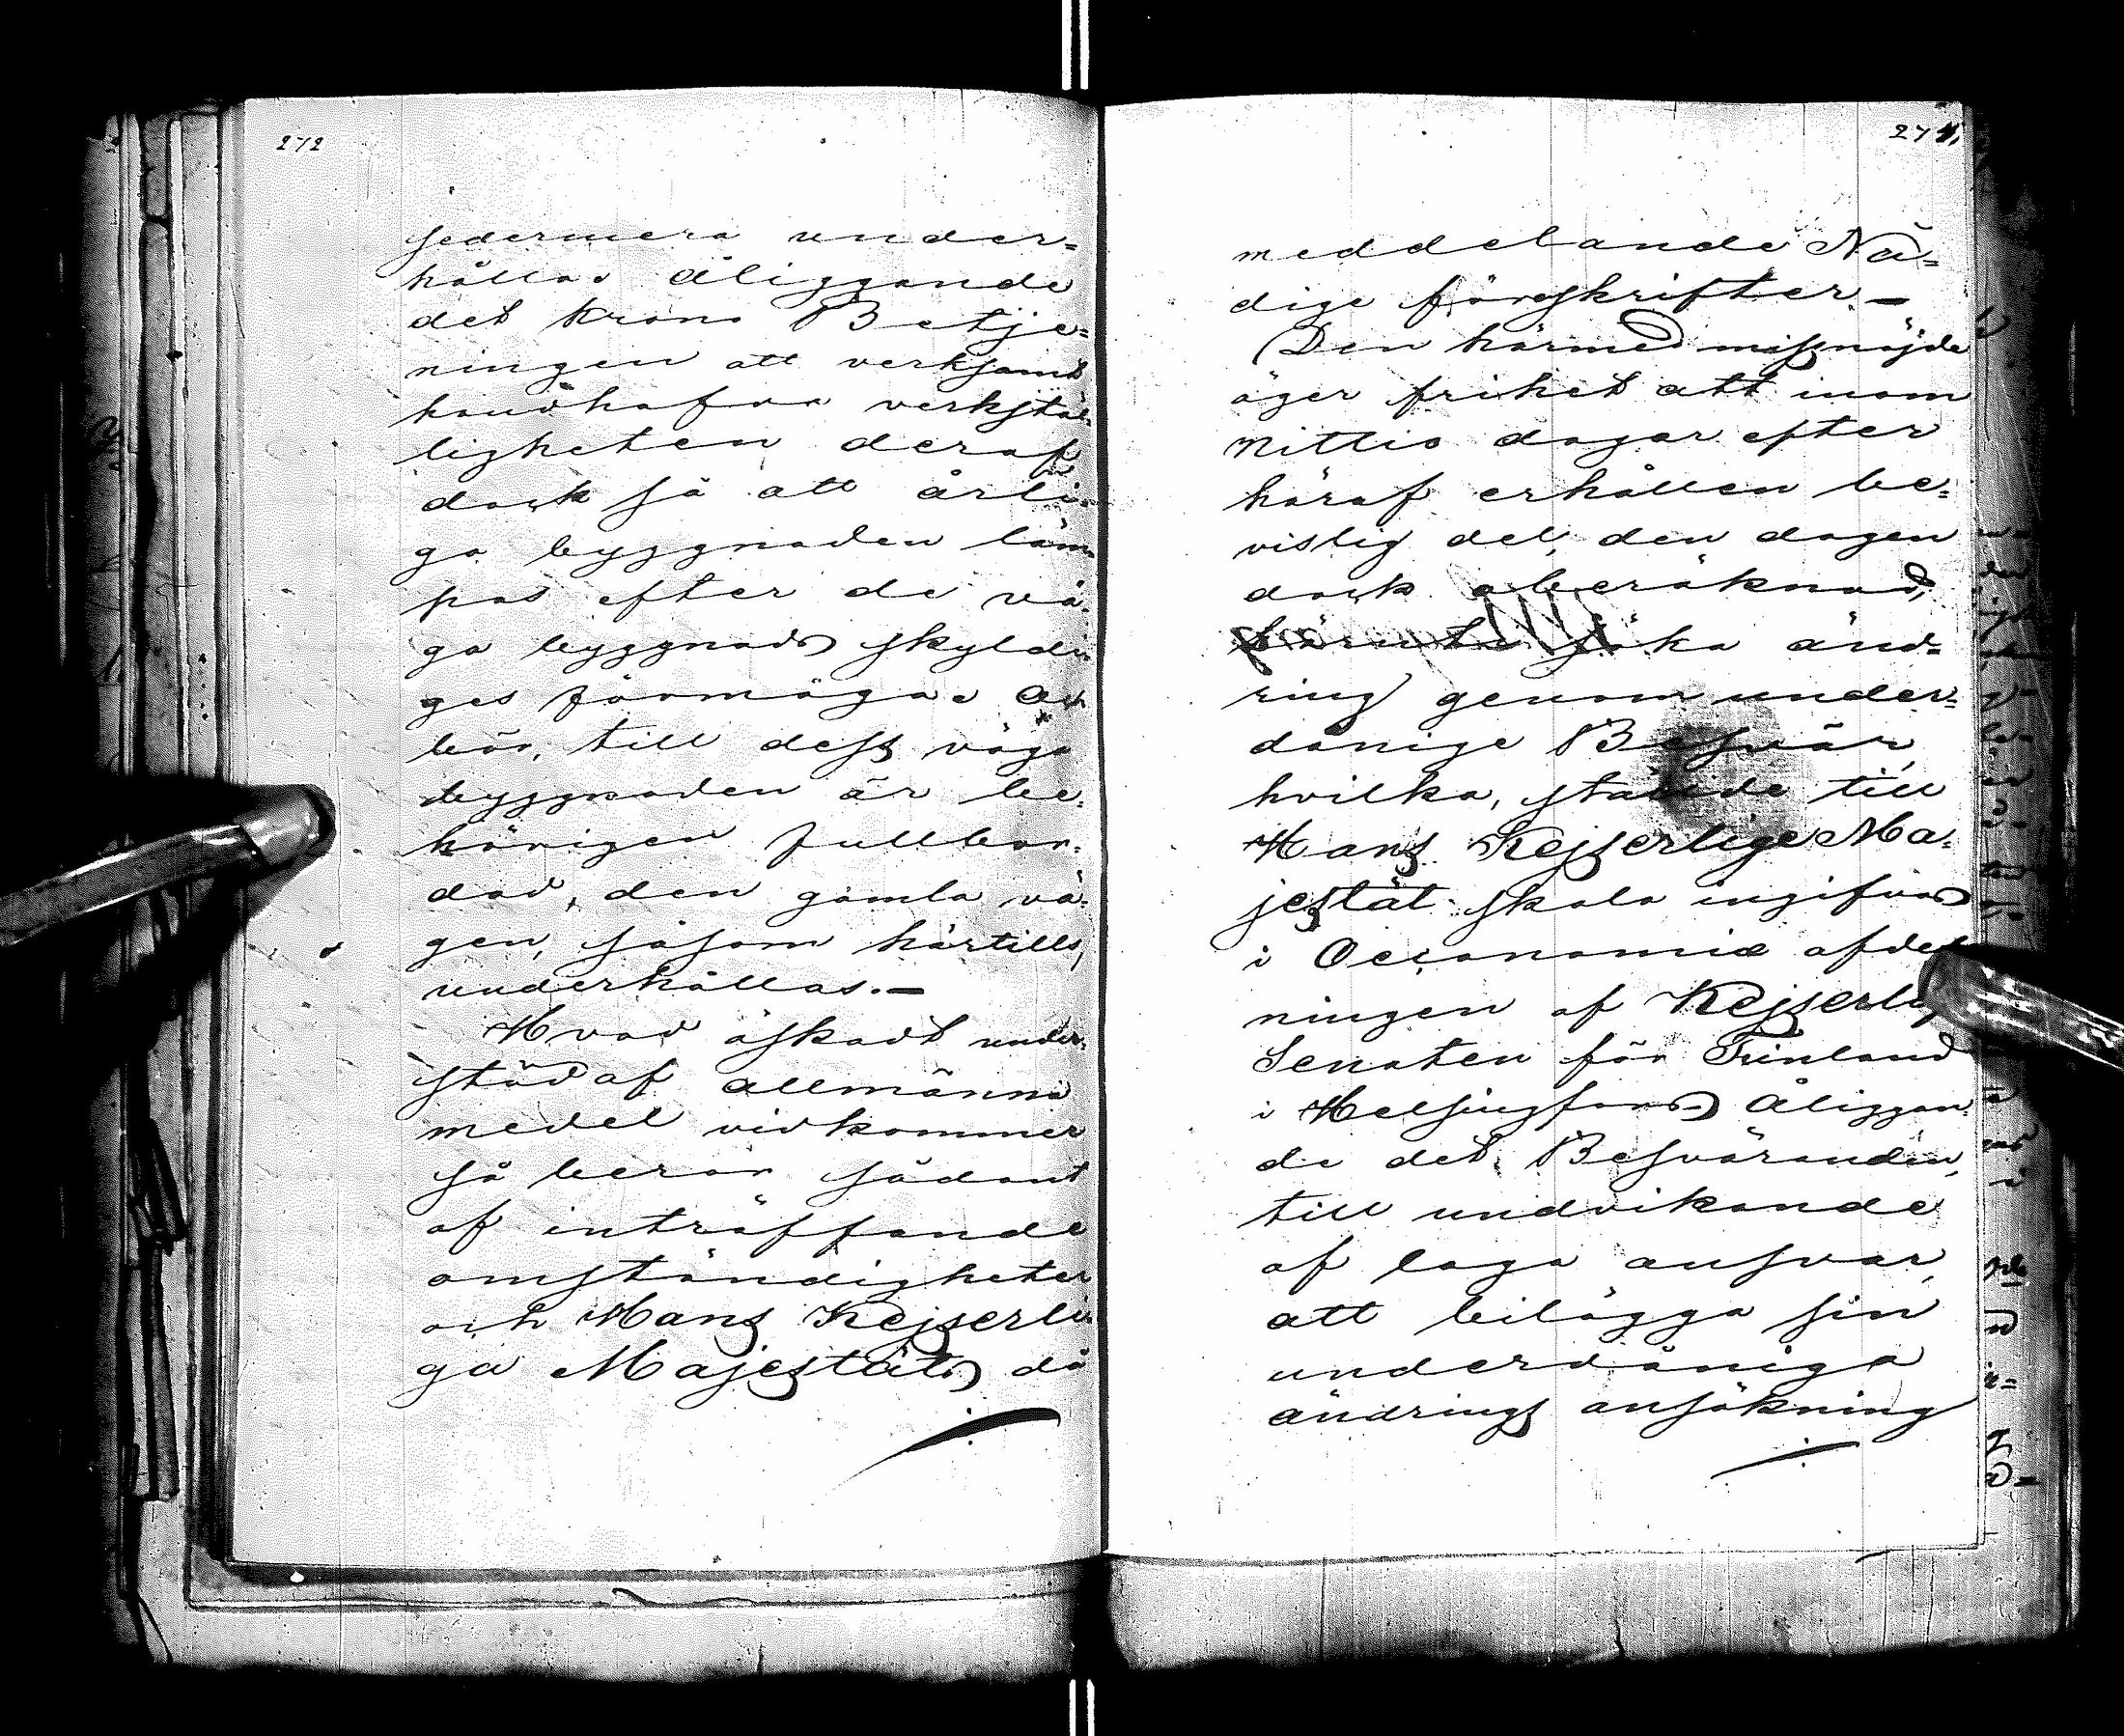 272
sedermera under=
hållas åliggande
det Krono Betje=
ningen att verksamt
handhafva verkstäl=
ligheten deraf
dock så att årli=
ga byggnaden läm=
pas efter de vä=
ga byggnads skyldi=
ges förmåga
bör, till dess väga
byggnaden är be=
hörigen fullbor=
dad, den gamla vä=
gen, såsom härtills,
underhållas.—
Hvad äskadt under=
stöd af allmänna
medel vidkommer
så beror sådant
af inträffande
omständigheter
och Hans Kejserli=
ga Majestäts då
meddelande Nå=
dige föreskrifter—
Den härmed missnöjde
äger frihet att inom
Nittio dagar efter
häraf erhållen be=
vislig del, den dagen
dock oberäknad,
söka änd=
ring genom under=
dånige Besvär,
hvilka, stälde till
Hans Kejserlige Ma=
jestät skola ingifvas
i Oeconomie afdel
ningen af Kejserlig
Senaten för Finland
i Helsingfors åliggan=
de det Besväranden,
till undvikande
af laga ansvar,
att bilägga sin
underdåniga
ändrings ansökning